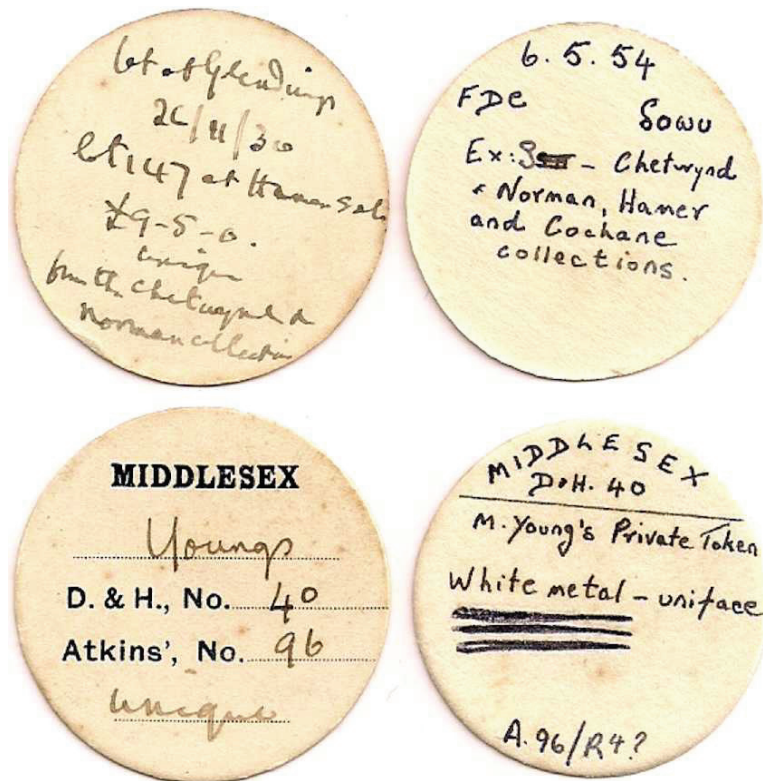 bt at Glendinings
26/11/30
lot 147 at Hamer Sale
£9-5-0.
unique
from the Chetwynd &
Norman collection
6.5.54
FDC
Ex: - Chetwynd
& Norman, Hamer
and Cochane
collections.
MIDDLESEX
Youngs
D. & H., No. 40
Atkins', No. 96
unique
MIDDLESEX
D&H. 40
M. Young's Private Token
White metal - uniface
A.96/R4?